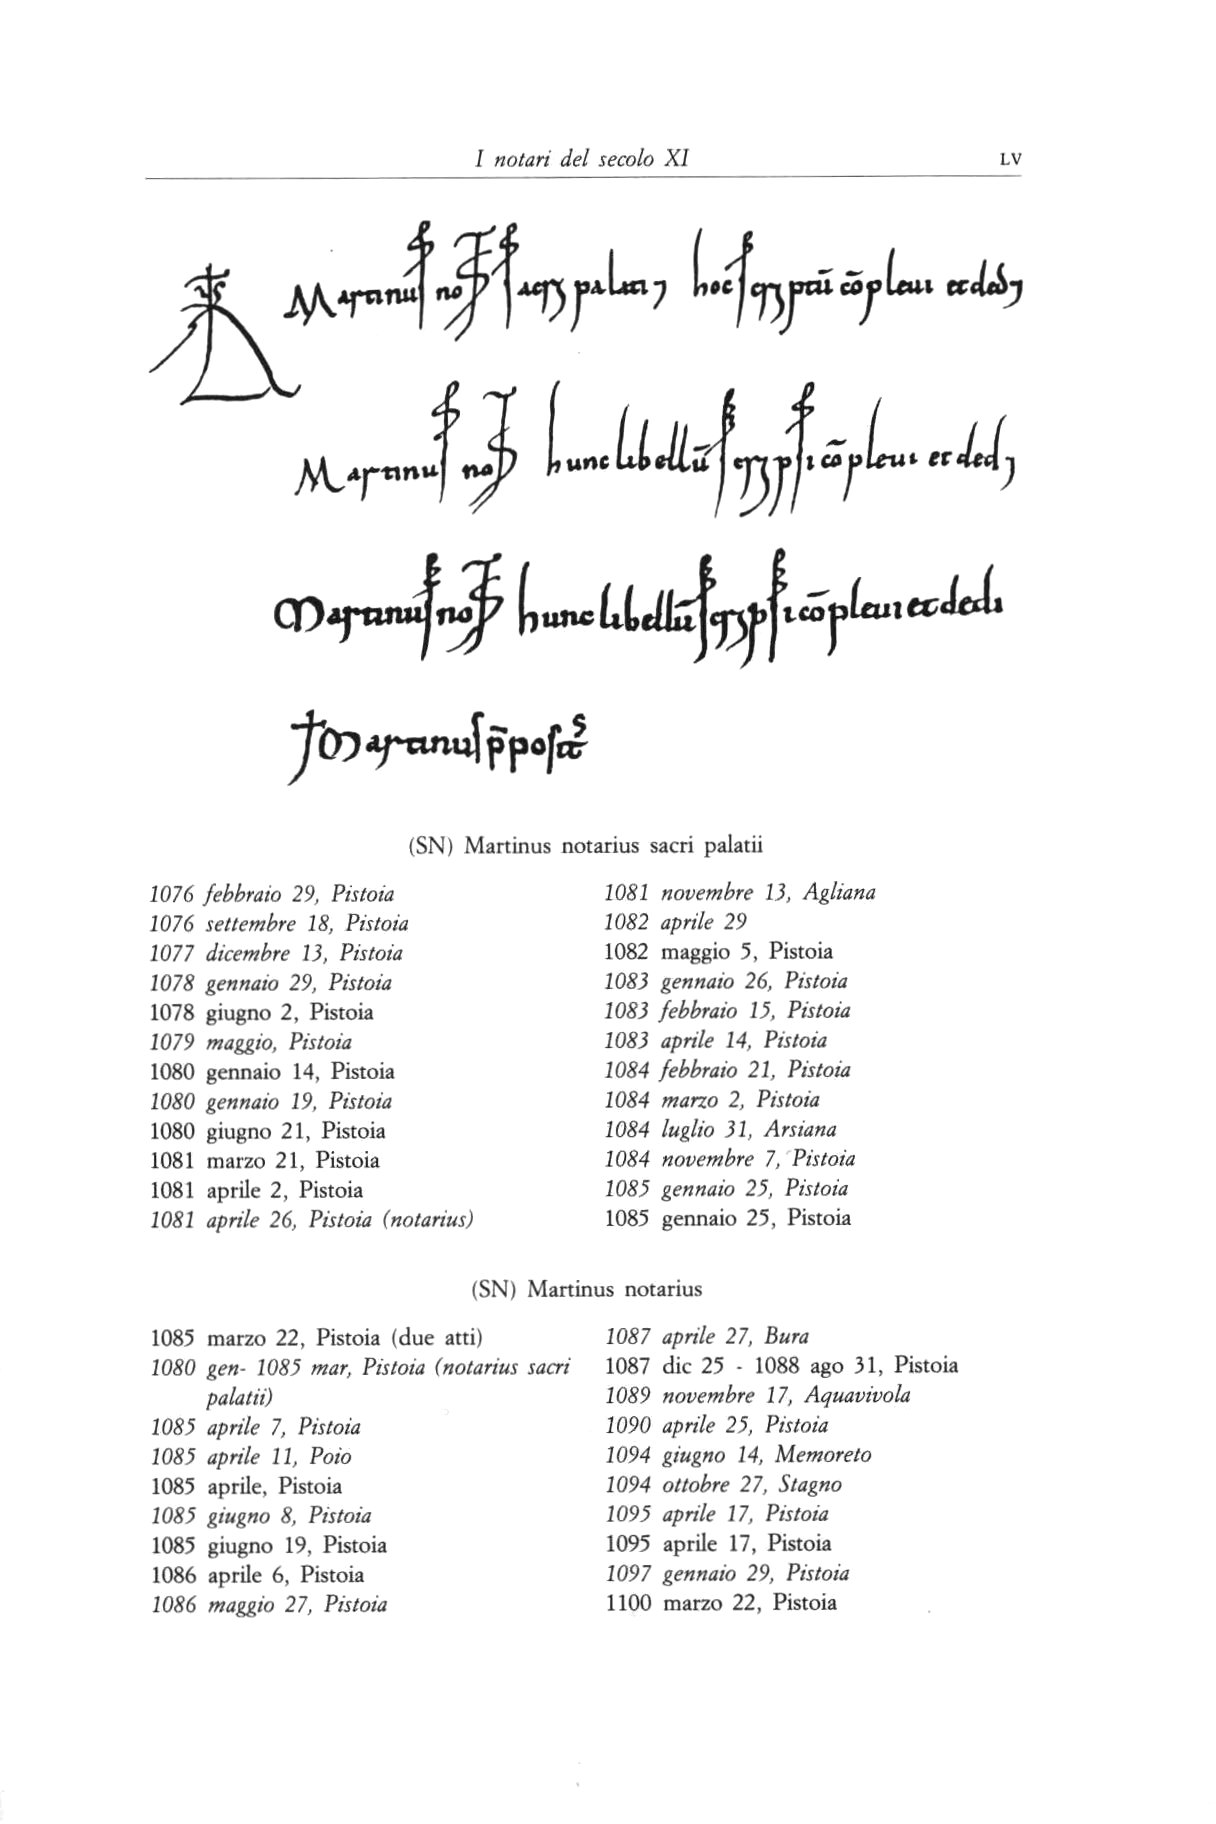 I notari del secolo XI LV
Martinus not sacri palatii hoc scriptū cōplevi et dedi
Martinus not hunc libellū scripsi cōplevi et dedi
Martinus not hunc libellū scripsi cōplevi et dedi
† Martinus p̄posits
(SN) Martinus notarius sacri palatii
1076 febbraio 29, Pistoia
1076 settembre 18, Pistoia
1077 dicembre 13, Pistoia
1078 gennaio 29, Pistoia
1078 giugno 2, Pistoia
1079 maggio, Pistoia
1080 gennaio 14, Pistoia
1080 gennaio 19, Pistoia
1080 giugno 21, Pistoia
1081 marzo 21, Pistoia
1081 aprile 2, Pistoia
1081 aprile 26, Pistoia (notarius)
1081 novembre 13, Agliana
1082 aprile 29
1082 maggio 5, Pistoia
1083 gennaio 26, Pistoia
1083 febbraio 15, Pistoia
1083 aprile 14, Pistoia
1084 febbraio 21, Pistoia
1084 marzo 2, Pistoia
1084 luglio 31, Arsiana
1084 novembre 7, Pistoia
1085 gennaio 25, Pistoia
1085 gennaio 25, Pistoia
(SN) Martinus notarius
1085 marzo 22, Pistoia (due atti)
1080 gen- 1085 mar, Pistoia (notarius sacri
palatii)
1085 aprile 7, Pistoia
1085 aprile 11, Poio
1085 aprile, Pistoia
1085 giugno 8, Pistoia
1085 giugno 19, Pistoia
1086 aprile 6, Pistoia
1086 maggio 27, Pistoia
1087 aprile 27, Bura
1087 dic 25 - 1088 ago 31, Pistoia
1089 novembre 17, Aquavivola
1090 aprile 25, Pistoia
1094 giugno 14, Memoreto
1094 ottobre 27, Stagno
1095 aprile 17, Pistoia
1095 aprile 17, Pistoia
1097 gennaio 29, Pistoia
1100 marzo 22, Pistoia